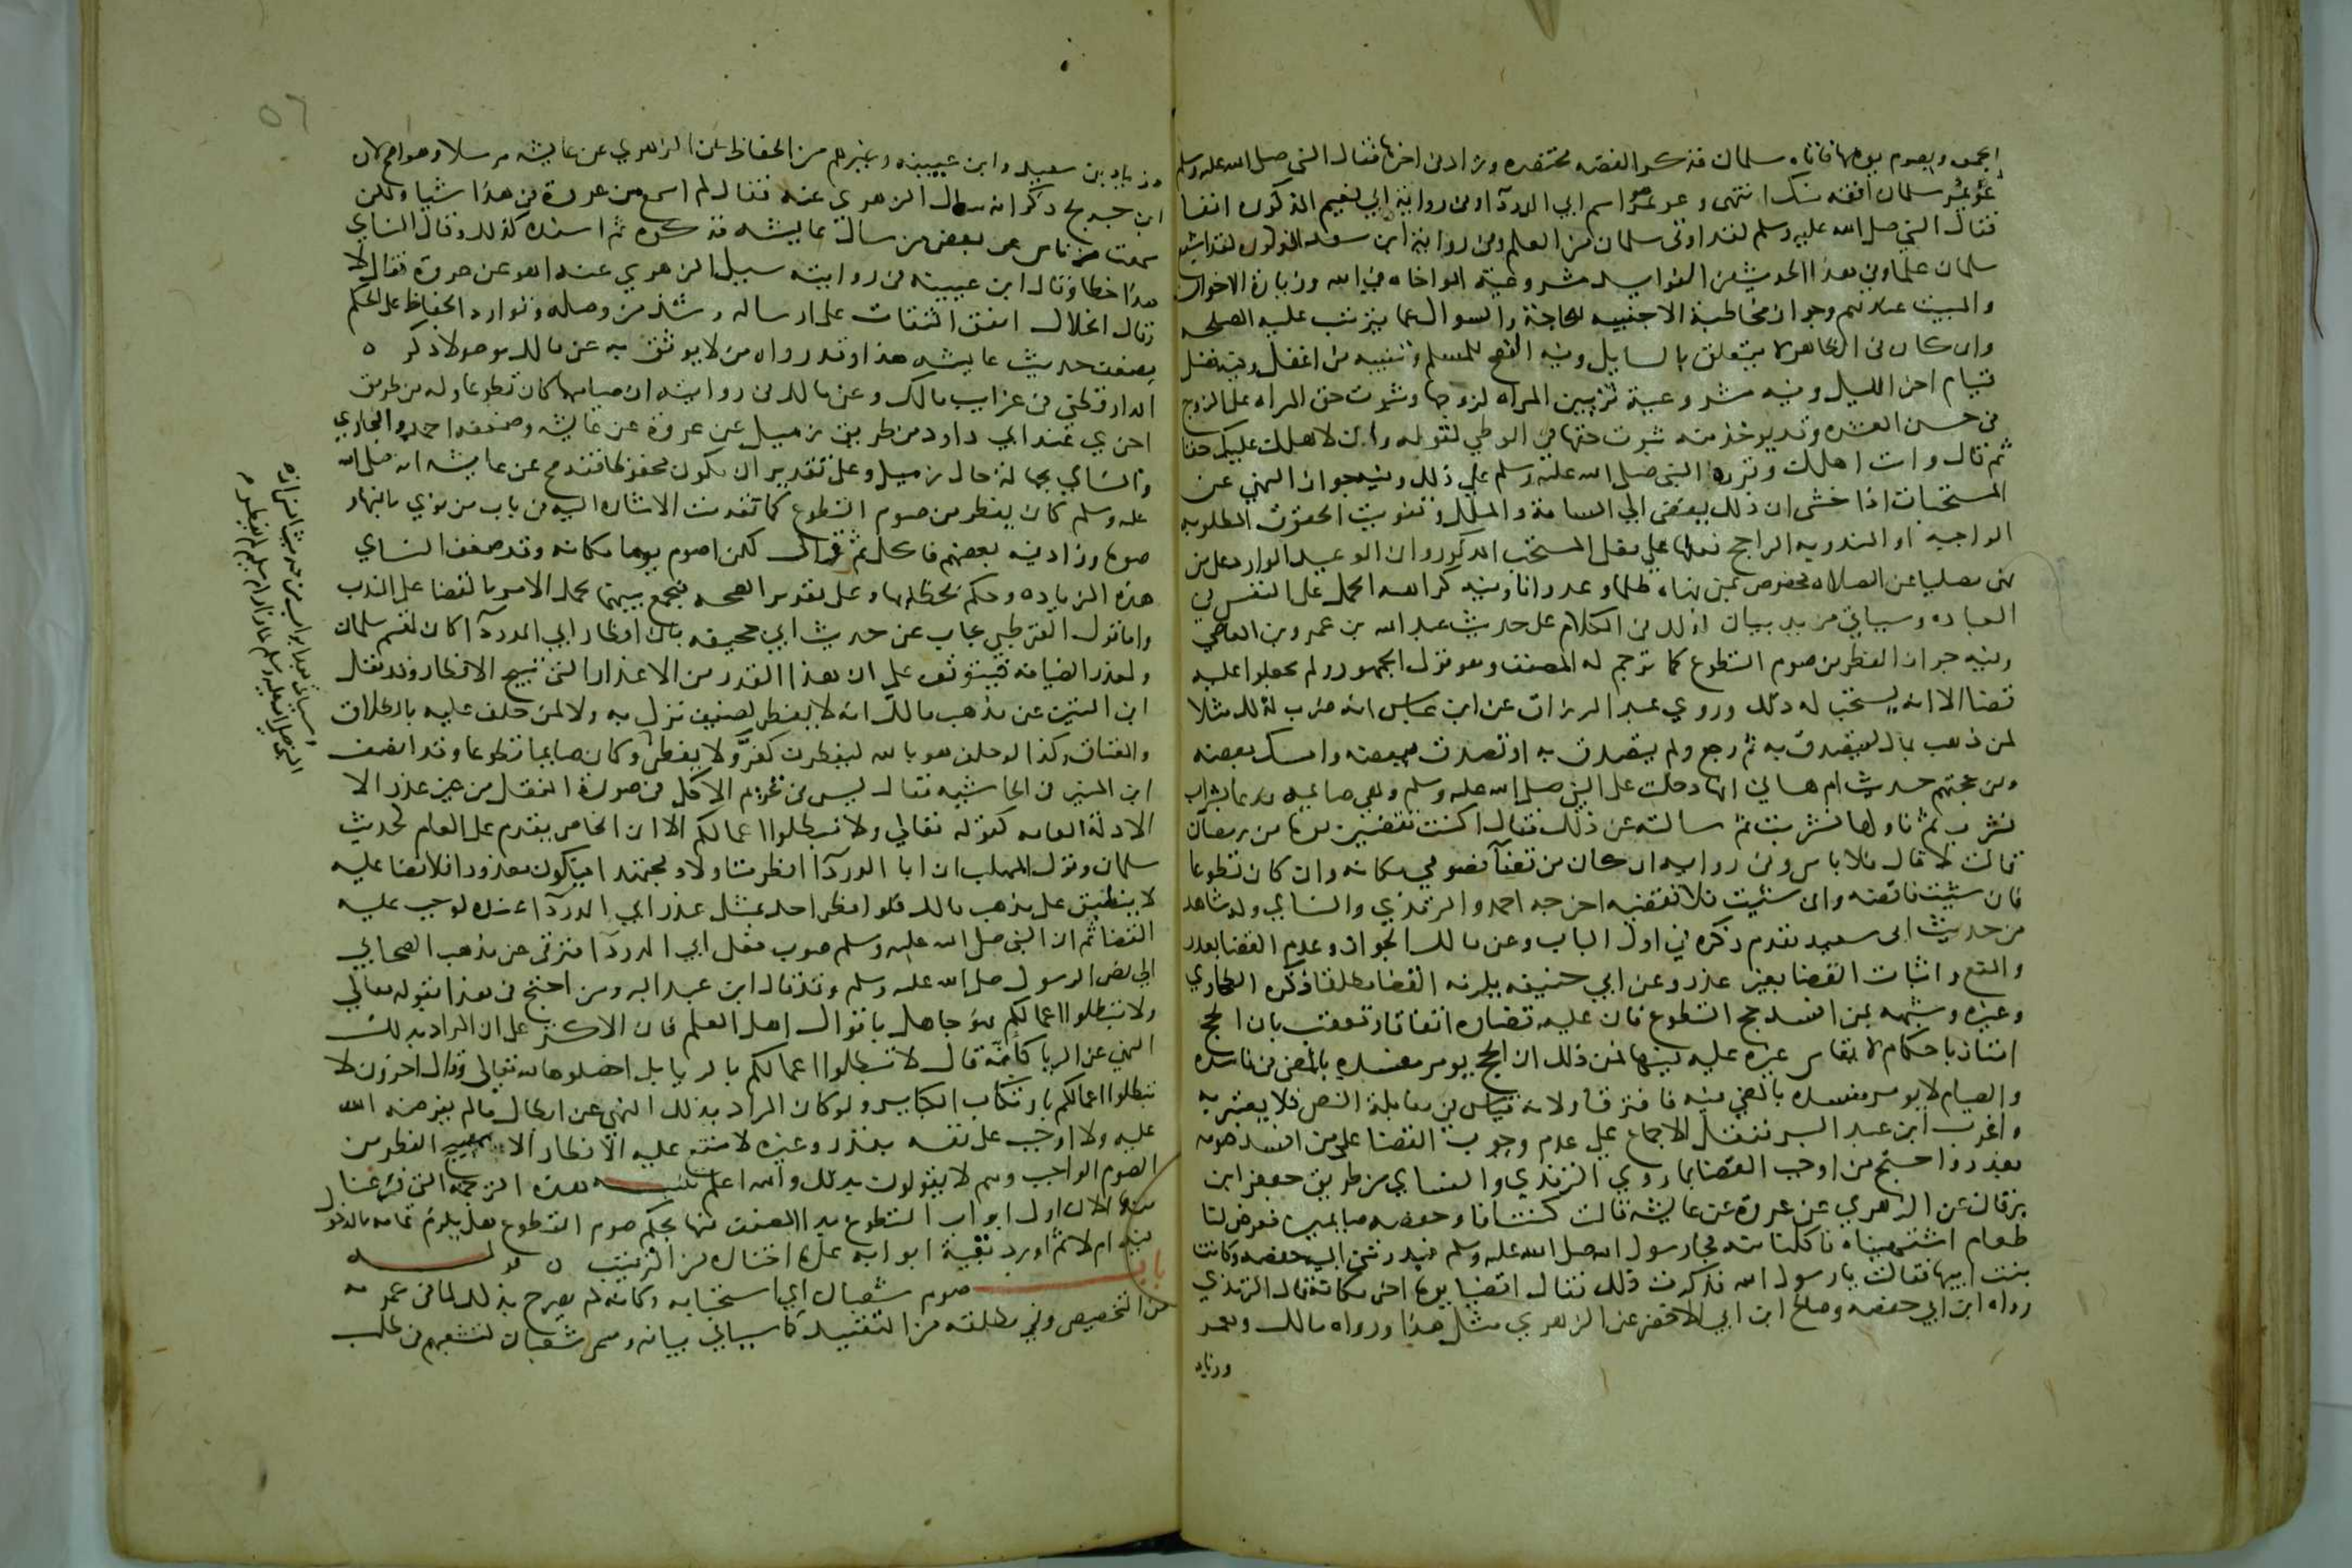 الجمعة ويصوم يومها فاتاه سلمان فذكر القصه مختصره وزاد في اخرها فقال النبي صلى الله عليه وسلم
عويمر سلمان افقه منك انتهى وعويمر اسم ابي الدردآ وفي رواية ابي نعيم المذكوره انفا
فقال النبي صلى الله عليه وسلم لقد اوتى سلمان من العلم وفي رواية ابن سعد المذكوره لقد اشبع
سلمان علما وفي هذا الحديث من الفوايد مشروعية المواخاه في الله وزيارة الاخوان
والمبيت عندهم وجواز مخاطبة الاجنبيه للحاجة والسوال عما يترتب عليه المصلحه
وان كان في الظاهر لا يتعلق بالسايل وفيه النصح للمسلم وتنبيه من اغفل وفيه فضل
قيام اخر الليل وفيه مشروعية تزيين المراه لزوجها وثبوت حق المراه على الزوج
في حسن العشره وقد يوخذ منه ثبوت حقها في الوطي لقوله وان لاهلك عليك حقا
ثم قال وات اهلك وقرره النبي صلى الله عليه وسلم على ذلك وفيه جواز النهي عن
المستحبات اذا خشى ان ذلك يفضى الى السامة والملل وتفويت الحقوق المطلوبه
الواجبه او المندوبه الراجح فعلها على فعل المستحب المذكور وان الوعيد الوارد على من
نهى مصليا عن الصلاه مخصوص بمن نهاه ظلما وعدوانا وفيه كراهه الحمل على النفس في
العباده وسياتي مزيد بيان لذلك في الكلام على حديث عبد الله بن عمرو بن العاصي
وفيه جواز الفطر من صوم التطوع كما ترجم له المصنف وهو قول الجمهور ولم يجعلوا عليه
قضا الا انه يستحب له ذلك وروي عبد الرزاق عن ابن عباس انه ضرب لذلك مثلا
لمن ذهب بمال ليتصدق به ثم رجع ولم يتصدق به او تصدق ببعضه وامسك بعضه
ومن حجتهم حديث ام هاني انها دخلت على النبي صلى الله عليه وسلم وهي صايمه فدعا بشراب
فشرب ثم ناولها فشربت ثم سالته عن ذلك فقال اكنت تقضين يوما من رمضان
قالت لا قال فلا باس وفي روايه ان كان من قضآ فصومي مكانه وان كان تطوعا
فان شئت فاقضه وان شئت فلا تقضيه اخرجه احمد والترمذي والنساي وله شاهد
من حديث ابي سعيد تقدم ذكره في اول الباب وعن مالك الجواز وعدم القضا بعذر
والمنع واثبات القضا بغير عذر وعن ابي حنيفه يلزمه القضا مطلقا ذكره الطحاوي
وغيره وشبهه بمن افسد حج التطوع فان عليه قضاه اتفاقا وتعقب بان الحج
امتاز باحكام لا يقاس غيره عليه فيها فمن ذلك ان الحج يومر مفسده بالمضي في فاسده
والصيام لا يومر مفسده بالمضي فيه فافترقا ولانه قياس في مقابلة النص فلا يعتبر به
واغرب ابن عبد البر فنقل الاجماع على عدم وجوب القضا على من افسد صومه
بعذر واحتج من اوجب القضا بما روي الترمذي والنساي من طريق جعفر ابن
برقان عن الزهري عن عروة عن عايشه قالت كنت انا وحفصه صايمين فعرض لنا
طعام اشتهيناه فاكلنا منه فجا رسول الله صلى الله عليه وسلم فبدرتني اليه حفصه وكانت
بنت ابيها فقالت يا رسول الله فذكرت ذلك فقال اقضيا يوما اخر مكانه قال الترمذي
رواه ابن ابي حفصه وصالح ابن ابي الاخضر عن الزهري مثل هذا ورواه مالك ومعمر
وزياد
وزياد بن سعيد وابن عيينه وغيرهم من الحفاظ عن الزهري عن عايشه مرسلا وهو اصح لان
ابن جريج ذكر انه سال الزهري عنه فقال لم اسمع من عروة في هذا شيا ولكن
سمعت من ناس عن بعض من سال عايشه فذكره ثم اسنده كذلك وقال النساي
هذا خطا وقال ابن عيينه في روايته سيل الزهري عنه اهو عن عروة فقال لا
وقال الخلال اتفق الثقات على ارساله وشذ من وصله وتوارد الحفاظ على الحكم
بضعف حديث عايشه هذا وقد رواه من لا يوثق به عن مالك موصولا ذكره
الدارقطني في غرايب مالك وعن مالك في روايته ان صيامهما كان تطوعا وله من طريق
اخري عند ابي داود من طريق زميل عن عروة عن عايشه وضعفه احمد والبخاري
والنساي بجهالة حال زميل وعلى تقدير ان يكون محفوظا فقد صح عن عايشه انه صلى الله
عليه وسلم كان يفطر من صوم التطوع كما تقدمت الاشاره اليه في باب من نوي بالنهار
صوما وزاد فيه بعضهم فاكل ثم قال لكن اصوم يوما مكانه وقد ضعف النساي
هذه الزياده وحكم بخطايها وعلى تقدير الصحه فيجمع بينهما بحمل الامر بالقضا على الندب
واما قول القرطبي يجاب عن حديث ابي جحيفه بان افطار ابي الدردآ كان لقسم سلمان
ولعذر الضيافه فيتوقف على ان هذا القدر من الاعذار التي تبيح الافطار وقد نقل
ابن التين عن مذهب مالك انه لا يفطر لضيف نزل به ولا لمن حلف عليه بالطلاق
والعتاق وكذا لو حلف هو بالله ليفطرن كفر ولا يفطر وكان صايما تطوعا وقد انصف
ابن المنير في الحاشيه فقال ليس في تحريم الاكل في صورة النفل من غير عذر الا
الادلة العامه كقوله تعالي ولا تبطلوا اعمالكم الا ان الخاص يقدم على العام كحديث
سلمان وقول المهلب ان ابا الدردآ افطر متاولا ومجتهدا فيكون معذورا فلا قضا عليه
لا ينطبق على مذهب مالك فلو افطر احد بمثل عذر ابي الدردآ عنده لوجب عليه
القضا ثم ان النبي صلى الله عليه وسلم صوب فعل ابي الدردآ فترقى عن مذهب الصحابي
الى نص الرسول صلى الله عليه وسلم وقد قال ابن عبد البر ومن احتج في هذا بقوله تعالي
ولا تبطلوا اعمالكم فهو جاهل باقوال اهل العلم فان الاكثر على ان المراد بذلك
النهي عن الريا كانه قال لا تبطلوا اعمالكم بالريا بل اخلصوها لله تعالى وقال اخرون لا
تبطلوا اعمالكم بارتكاب الكباير ولو كان المراد بذلك النهي عن ابطال ما لم يفرضه الله
عليه ولا اوجب على نفسه بنذر وغيره لامتنع عليه الافطار الا بما يبيح الفطر من
الصوم الواجب وهم لا يقولون بذلك والله اعلم تنبيه هذه الترجمه التي فرغنا
منها الان اول ابواب التطوع بدا المصنف منها بحكم صوم التطوع هل يلزم تمامه بالدخول
فيه ام لا ثم اورد بقية ابوابه على ما اختاره من الترتيب ه قوله
باب صوم شعبان اي استحبابه وكانه لم يصرح بذلك لما في عمومه
من التخصيص وفي مطلقه من التقييد كما سياتي بيانه وسمى شعبان لتشعبهم في طلب